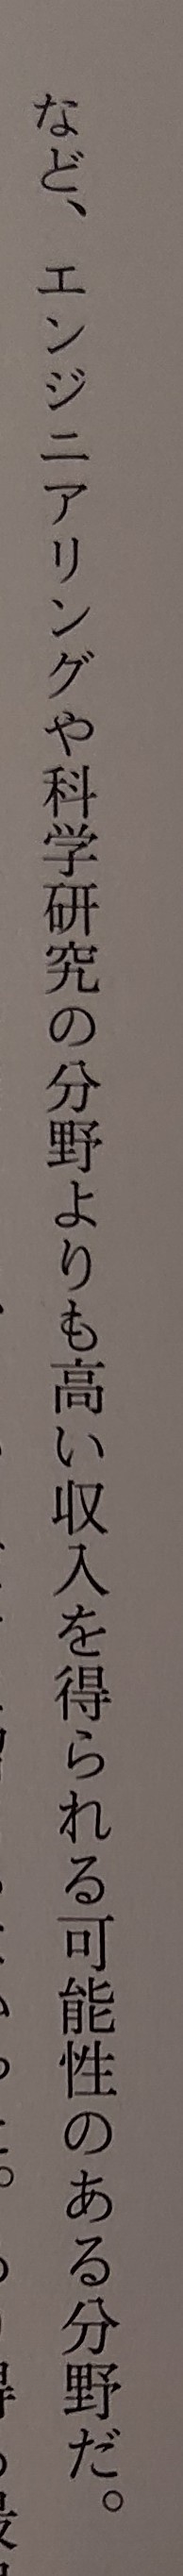 など、エンジニアリングや科学研究の分野よりも高い収入を得られる可能性のある分野だ。